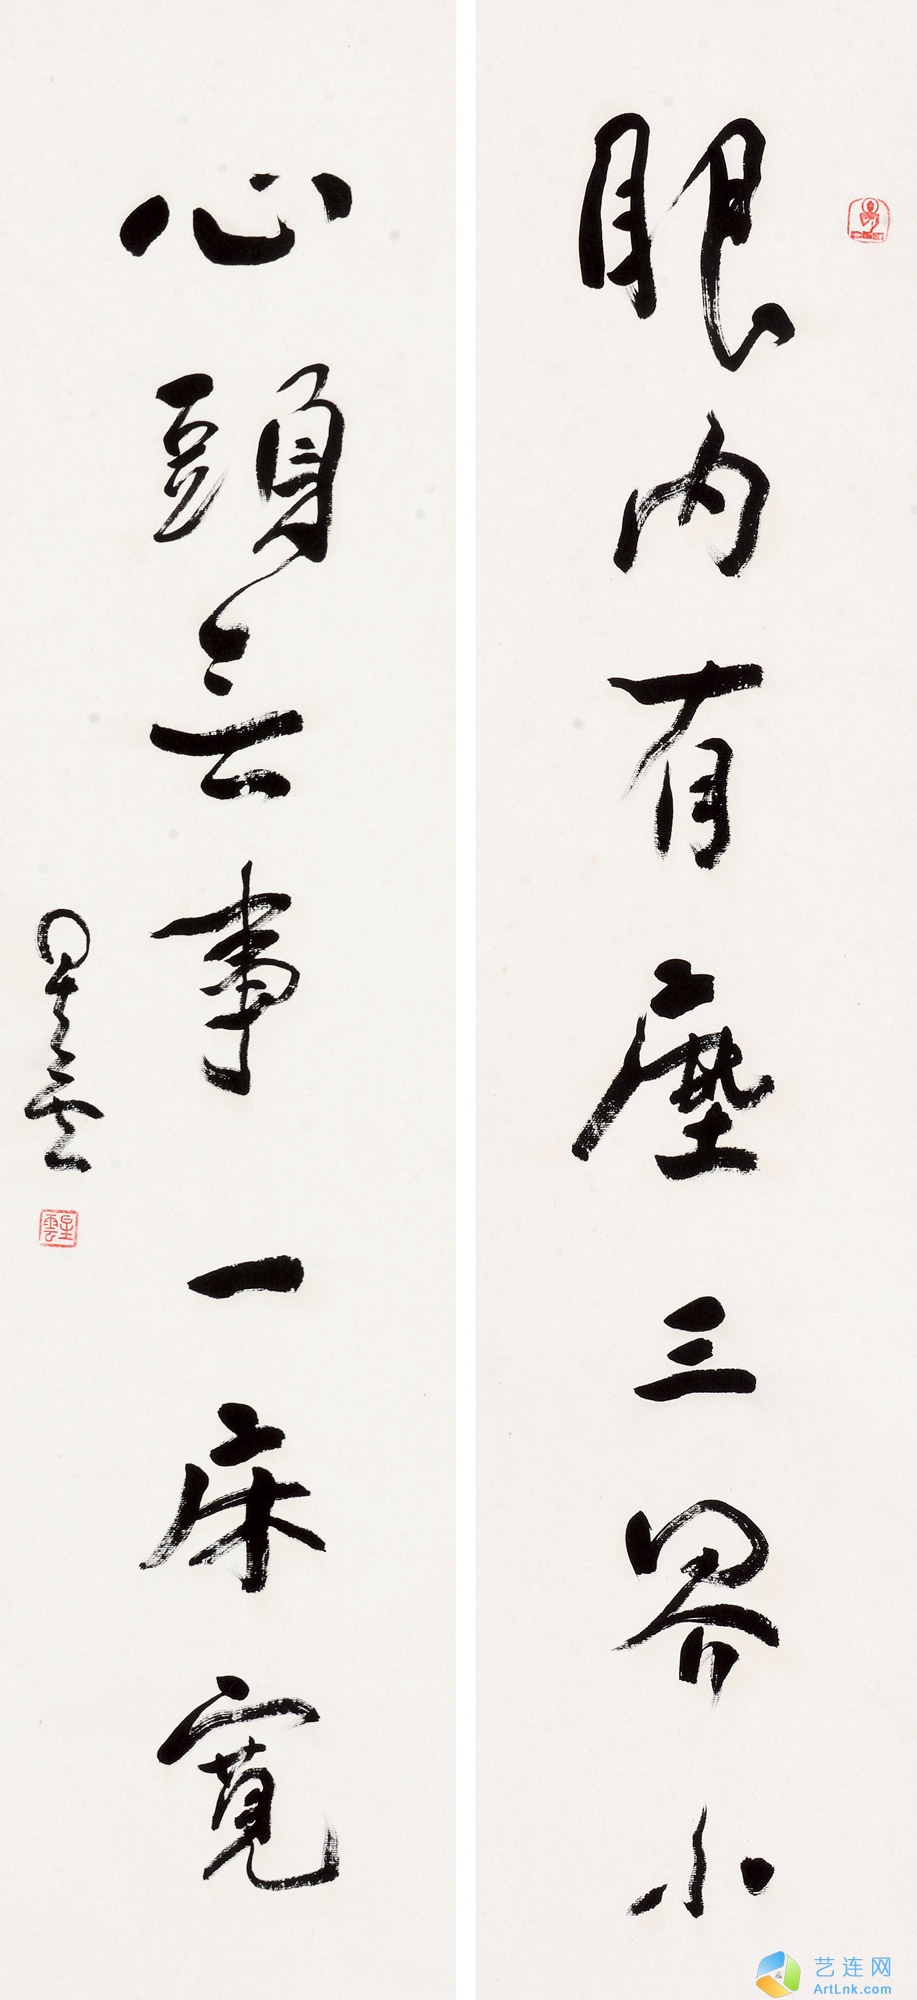 眼内有塵三界小
心頭无事一床寬
星雲
星雲
艺连网
ArtLnk.com